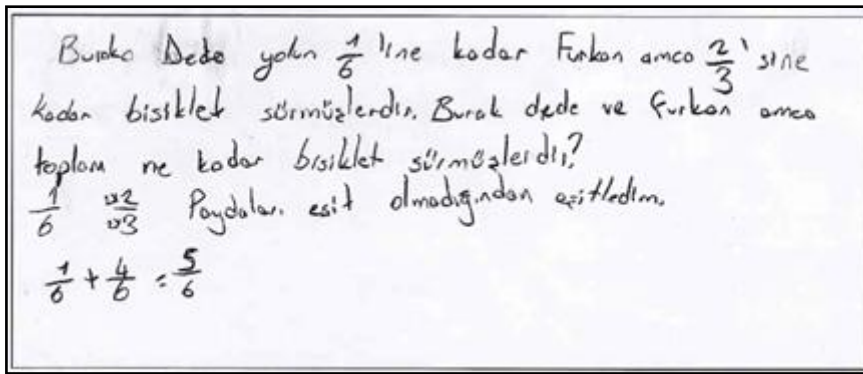 Burak Dede yolun 1/6 'ine kadar Furkan amca 2/3 'sine
kadar bisiklet sürmüşlerdir. Burak dede ve Furkan amca
toplam ne kadar bisiklet sürmüşlerdir?
1/6 2/3 Paydaları eşit olmadığından eşitledim.
1/6 + 4/6 = 5/6